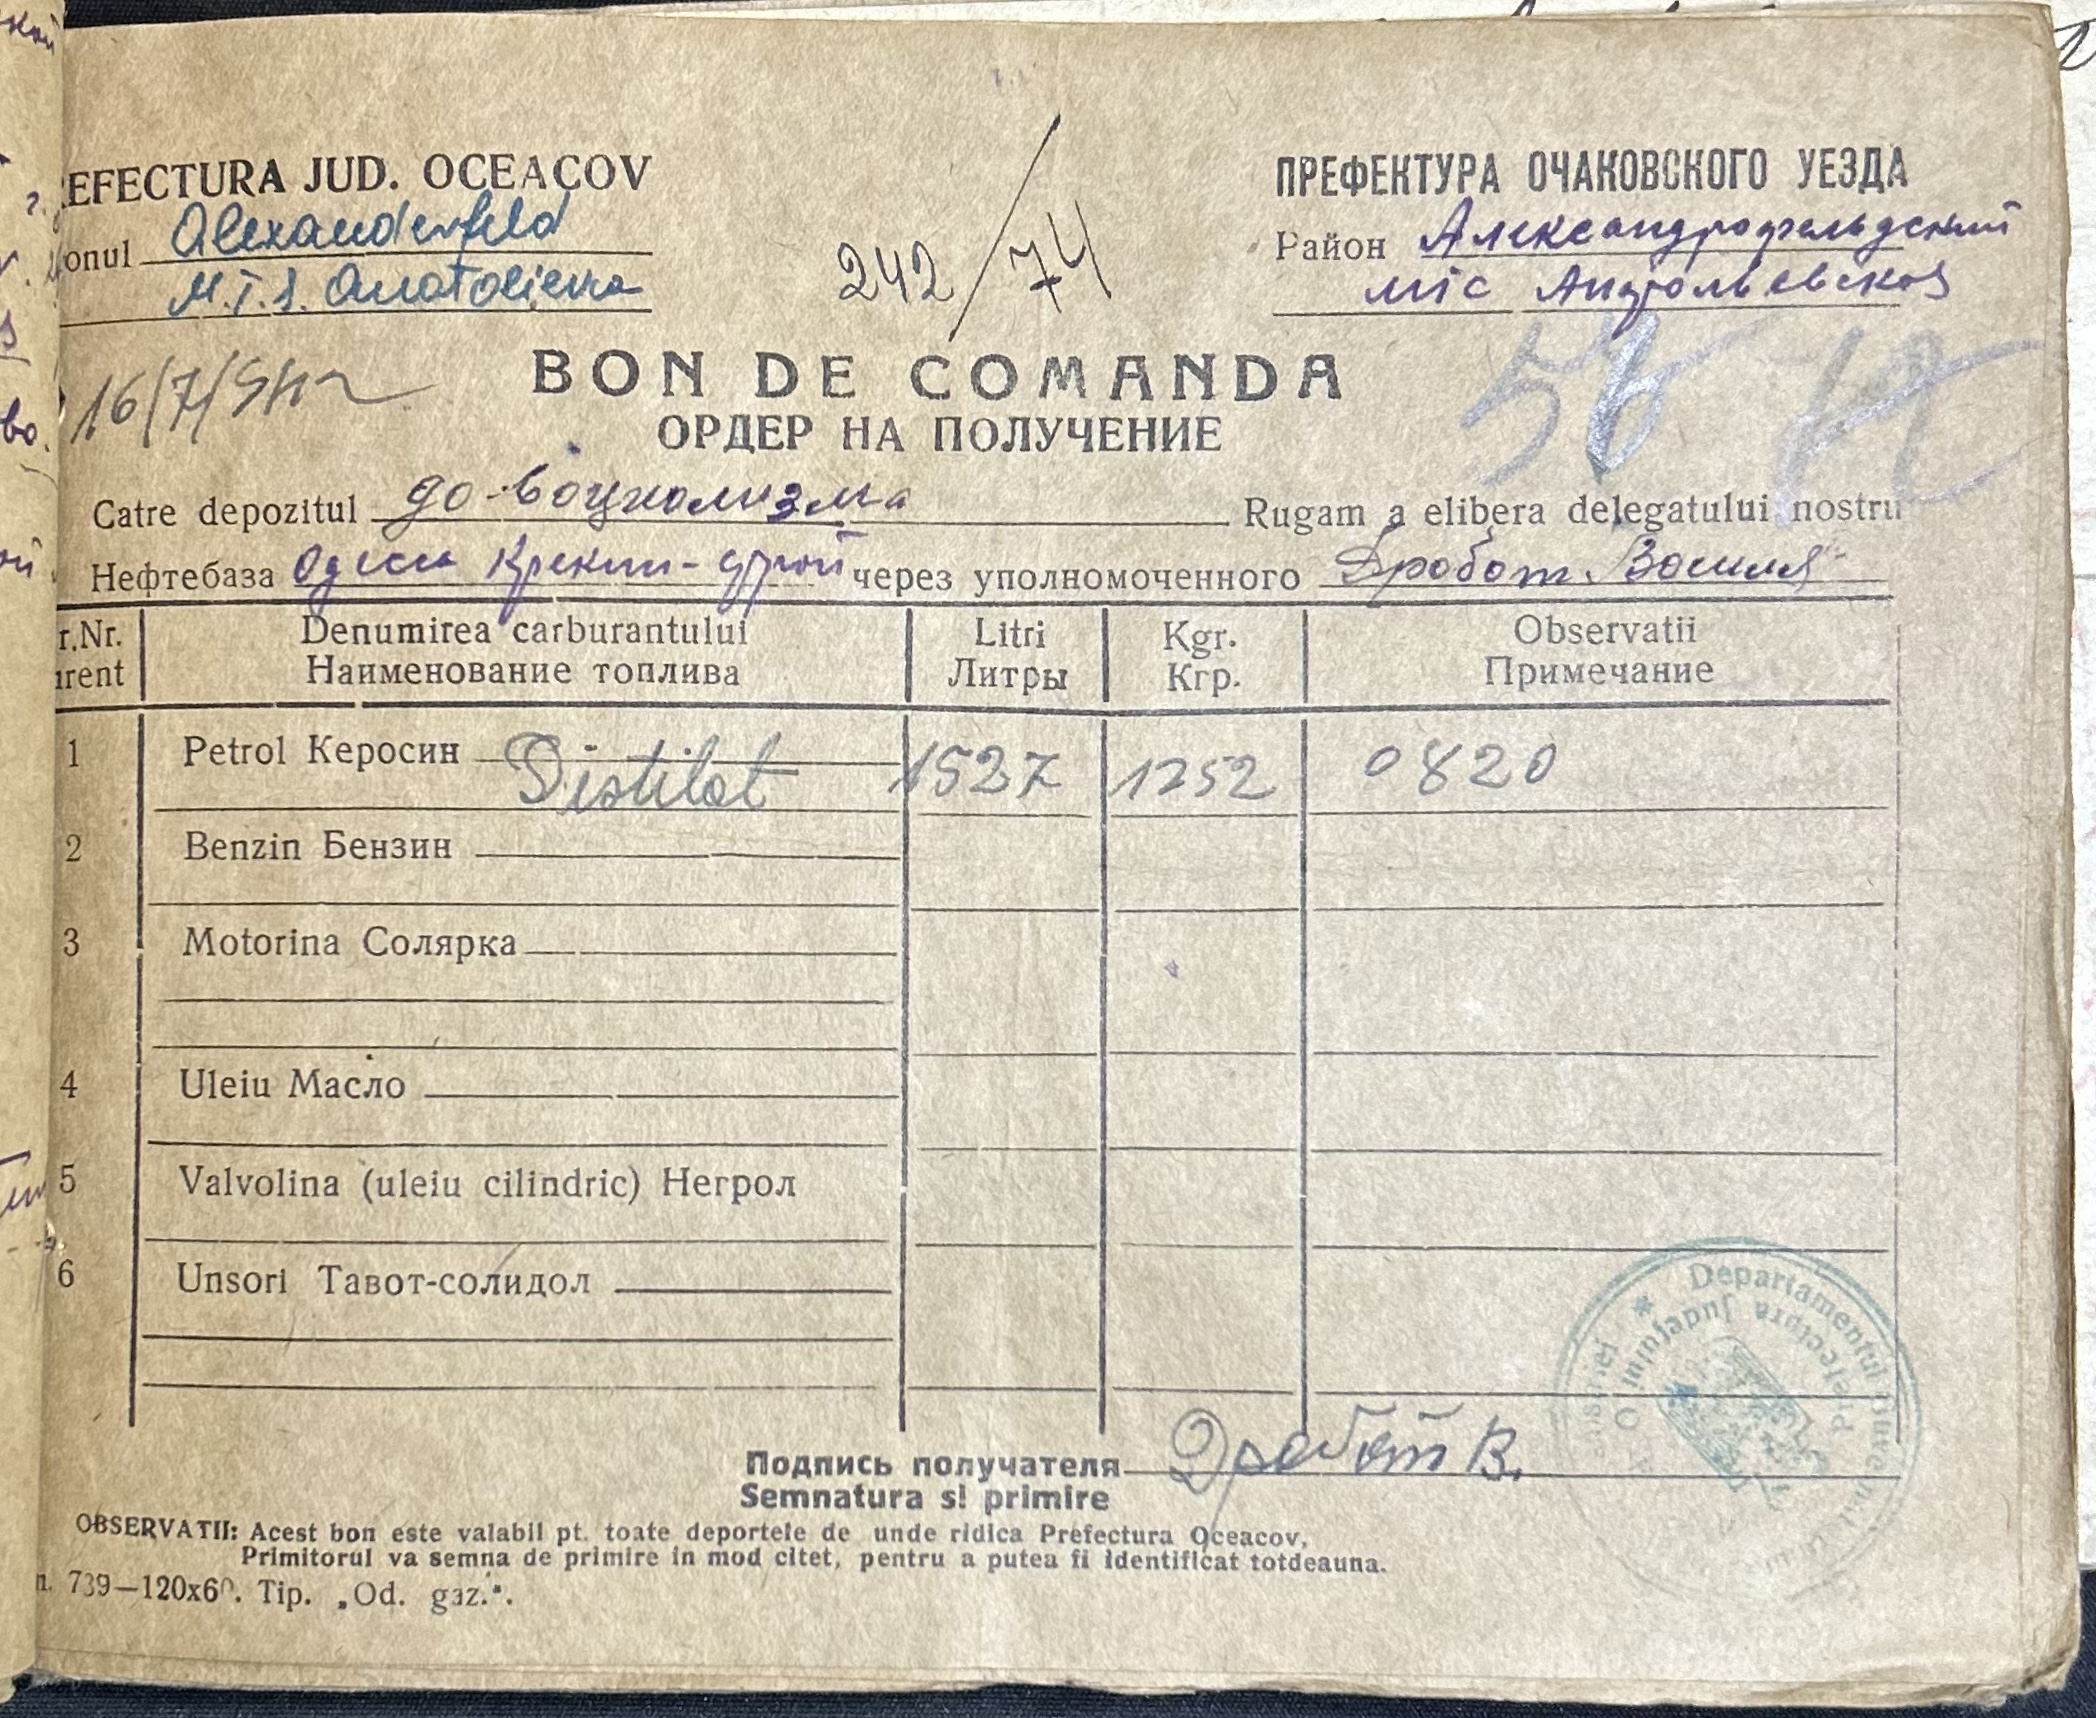 REFECTURA JUD. OCEACOV
onul Alexanderfeld
M.T.S. Anatolievca
242/74
ПРЕФЕКТУРА ОЧАКОВСКОГО УЕЗДА
Район Александрофельдский
мтс Анатольевская
16/7/942
BON DE COMANDA
ОРДЕР НА ПОЛУЧЕНИЕ
58
Catre depozitul до-воцколизма Rugam a elibera delegatului nostru
Нефтебаза Одесса Крекин-строй через уполномоченного Дробот Василя
r.Nr. Denumirea carburantului Litri Kgr. Observatii
urent Наименование топлива Литры Кгр. Примечание
1 Petrol Керосин Distilat 1527 1252 0820
2 Benzin Бензин
3 Motorina Солярка
4 Uleiu Масло
5 Valvolina (uleiu cilindric) Негрол
6 Unsori Тавот-солидол
Departamentul
Prefectura Judeţului O
Подпись получателя Дробот В.
Semnatura s! primire
OBSERVATII: Acest bon este valabil pt. toate deportele de unde ridica Prefectura Oceacov,
Primitorul va semna de primire in mod citet, pentru a putea fi identificat totdeauna.
n. 739—120x60. Tip. „Od. gaz.".